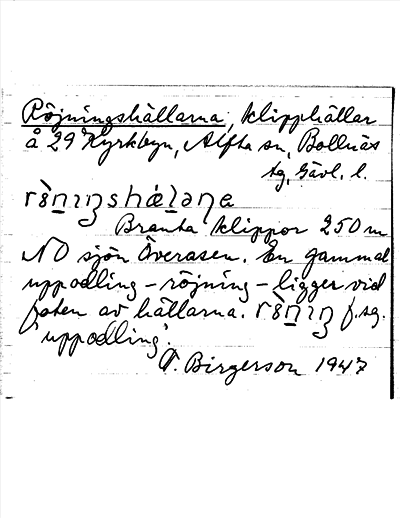 Röjningshällarna, klipphällar
å 29 Kyrkbyn, Alfta sn, Bollnäs
tg, Gävl. l.
Branta klippor 250 m
NO sjön Överasen. En gammal
uppodling - röjning - ligger vid
foten av hällarna. f. sg.
'uppodling'.
T. Birgerson 1947